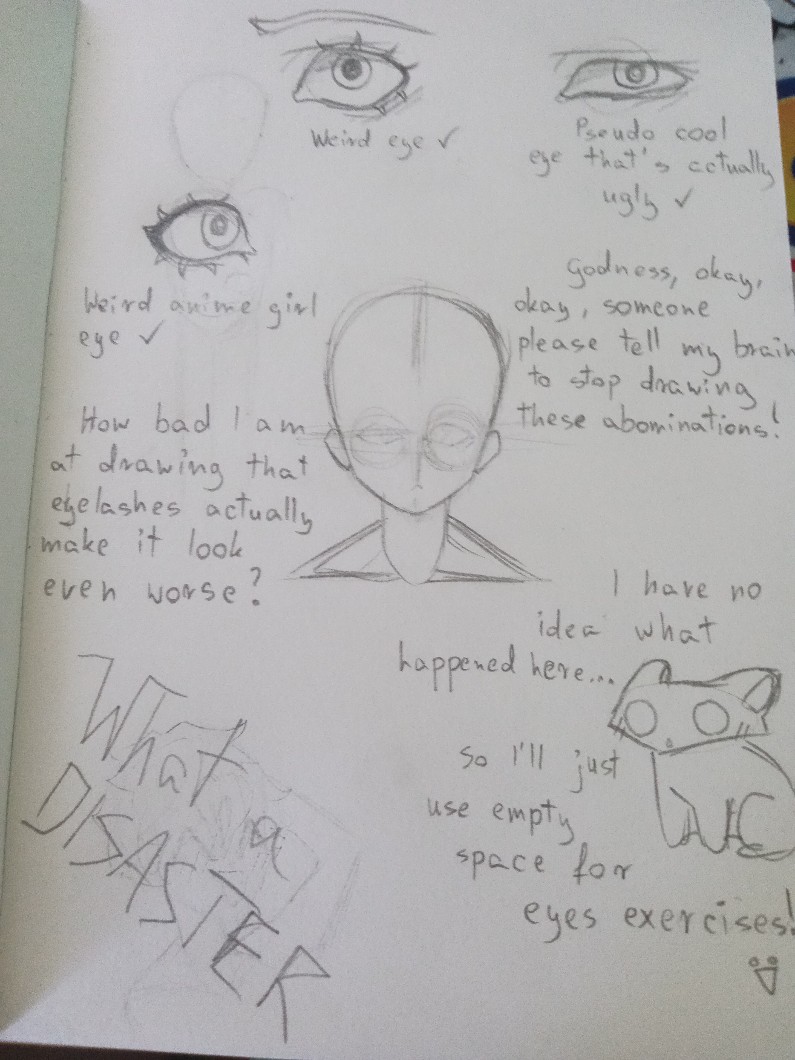 Weird eye ✓
Pseudo cool
eye that's actually
ugly ✓
Weird anime girl
eye ✓
Godness, okay,
okay, someone
please tell my brain
to stop drawing
these abominations!
How bad I am
at drawing that
eyelashes actually
make it look
even worse?
I have no
idea what
happened here...
so I'll just
use empty
space for
eyes exercises!
What a
DISASTER